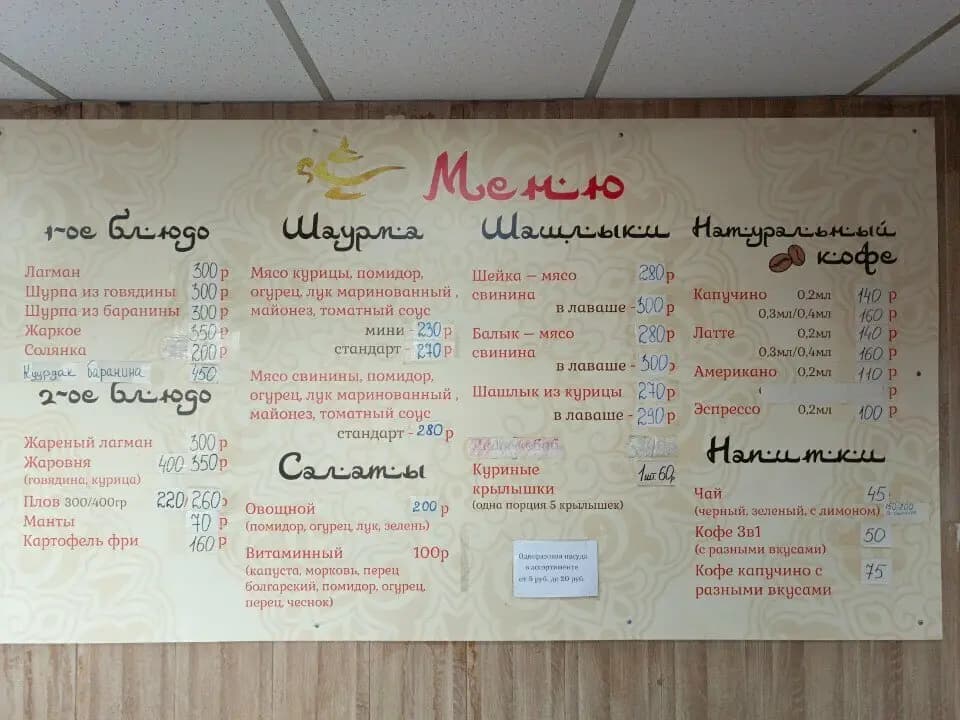 Меню
1-ое блюдо
Лагман 300 р
Шурпа из говядины 300 р
Шурпа из баранины 300 р
Жаркое 350 р
Солянка 200 р
Куурдак баранина 450
2-ое блюдо
Жареный лагман 300 р
Жаровня 400 350 р
(говядина, курица)
Плов 300/400гр 220/260
Манты 70 р
Картофель фри 160 р
Шаурма
Мясо курицы, помидор,
огурец, лук маринованный ,
майонез, томатный соус
мини - 230 р
стандарт - 270 р
Мясо свинины, помидор,
огурец, лук маринованный ,
майонез, томатный соус
стандарт - 280 р
Салаты
Овощной 200 р
(помидор, огурец, лук, зелень)
Витаминный 100р
(капуста, морковь, перец
болгарский, помидор, огурец,
перец, чеснок)
Шашлыки
Шейка – мясо 280 р
свинина
в лаваше - 300 р
Балык – мясо 280 р
свинина
в лаваше - 300
Шашлык из курицы 270 р
в лаваше - 290 р
Куриные 1шт 60р
крылышки
(одна порция 5 крылышек)
Одноразовая посуда
в ассортименте
от 5 руб. до 20 руб.
Натуральный
кофе
Капучино 0,2мл 140 р
0,3мл/0,4мл 160 р
Латте 0,2мл 140 р
0,3мл/0,4мл 160 р
Американо 0,2мл 110 р
р
Эспрессо 0,2мл 100 р
Напитки
Чай 45
(черный, зеленый, с лимоном)
Кофе 3в1 50
(с разными вкусами)
Кофе капучино с 75
разными вкусами